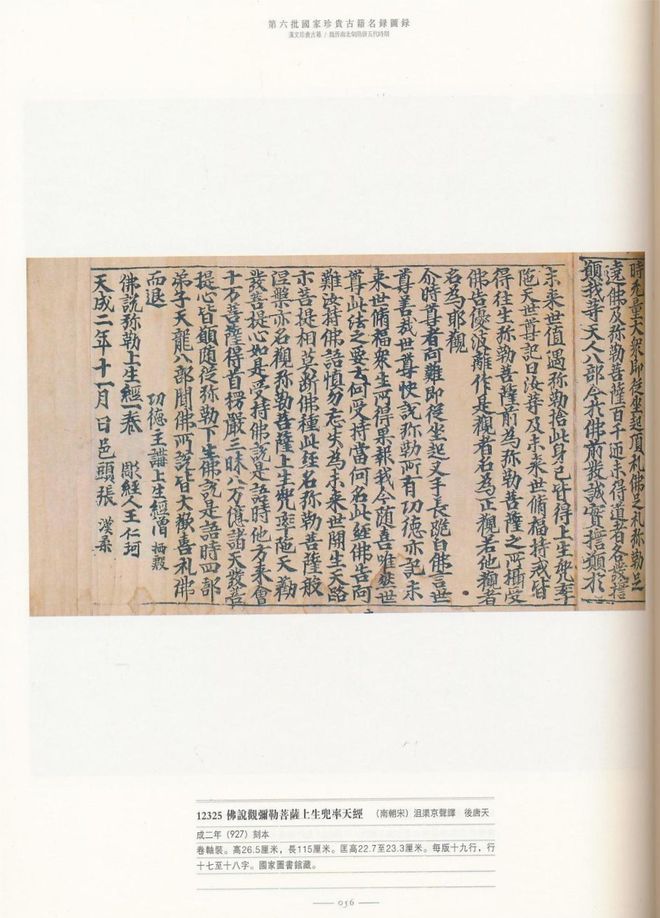 第六批國家珍貴古籍名錄圖錄
漢文珍貴古籍 / 魏晉南北朝隋唐五代時期
時無量大衆即從坐起頂礼佛足礼弥勒足
遶佛及弥勒菩薩百千迊未得道者各發誓
願我等天人八部今於佛前發誠實誓願於
未来世值遇弥勒捨此身已皆得上生兜率
陁天世尊記曰汝等及未来世脩福持戒皆
得往生弥勒菩薩前為弥勒菩薩之所攝受
佛告優波離作是觀者名為正觀若他觀者
名為耶觀
尒時尊者阿難即從坐起叉手長跪白佛言世
尊善哉世尊快說弥勒所有功德亦記未
来世脩福衆生所得果報我今随喜唯然世
尊此法之要云何受持當何名此經佛告阿
難汝持佛語慎勿忘失為未来世開生天路
示菩提相莫断佛種此経名弥勒菩薩般
涅槃亦名觀弥勒菩薩上生兜率陁天勸
發菩提心如是受持佛說是語時他方来會
十万菩薩得首楞嚴三昧八万億諸天發菩
提心皆願随從弥勒下生佛說是語時四部
弟子天龍八部聞佛所說皆大歡喜礼佛
而退
功德主講上生經僧 栖殷
佛說弥勒上生經一卷 彫經人王仁珂
天成二年十一月日邑頭張 漢柔
12325 佛說觀彌勒菩薩上生兜率天經 （南朝宋）沮渠京聲譯 後唐天
成二年（927）刻本
卷軸裝。高26.5厘米，長115厘米。匡高22.7至23.3厘米。每版十九行，行
十七至十八字。國家圖書館藏。
056